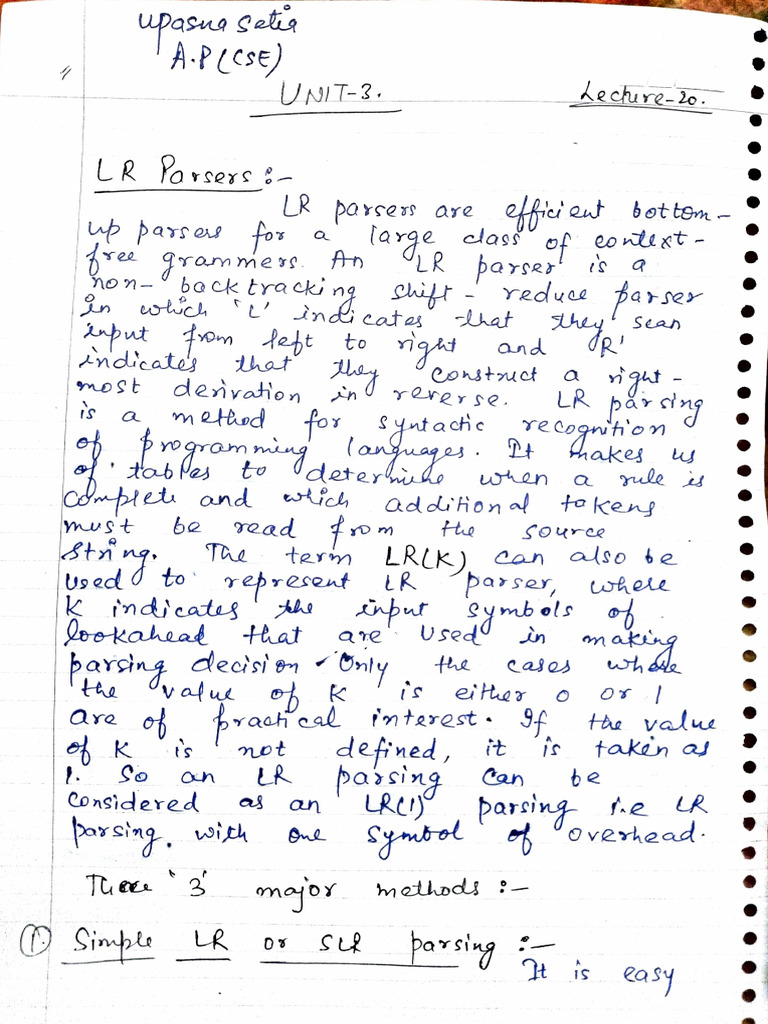 Upasna Satia
A.P (CSE)
UNIT-3.
Lecture-20.
LR Parsers :-
LR parsers are efficient bottom-
up parsers for a large class of context-
free grammers. An LR parser is a
non- backtracking shift - reduce parser
in which 'L' indicates that they scan
input from left to right and 'R'
indicates that they construct a right-
most derivation in reverse. LR parsing
is a method for syntactic recognition
of programming languages. It makes us
of tables to determine when a rule is
complete and which additional tokens
must be read from the source
string. The term LR(K) can also be
used to represent LR parser, where
K indicates the input symbols of
lookahead that are used in making
parsing decision. Only the cases where
the value of K is either 0 or 1
are of practical interest. If the value
of K is not defined, it is taken as
1. So an LR parsing can be
considered as an LR(1) parsing i.e LR
parsing with one symbol of overhead.
There '3' major methods :-
1. Simple LR or SLR parsing :-
It is easy